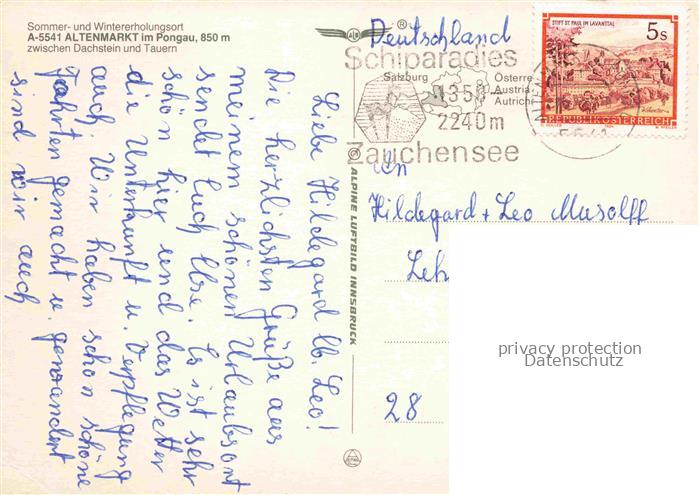 Sommer- und Wintererholungsort
A-5541 ALTENMARKT im Pongau, 850 m
zwischen Dachstein und Tauern
Liebe Hildegard lb. Leo!
Die herzlichsten Grüße aus
meinem schönen Urlaubsort
sendet Euch Ilse. Es ist sehr
schön hier und das Wetter
die Unterkunft u. Verpflegung
auch. Wir haben schon schöne
Fahrten gemacht u. gewandert
sind wir auch
ALPINE LUFTBILD INNSBRUCK
®
Deutschland
Schiparadies
Salzburg
Österre
Austria
Autrich
1350
2240m
Zauchensee
STIFT ST. PAUL IM LAVANTTAL
5 S
REPUBLIK ÖSTERREICH
An
Hildegard + Leo Musolff
Leh
28
privacy protection
Datenschutz